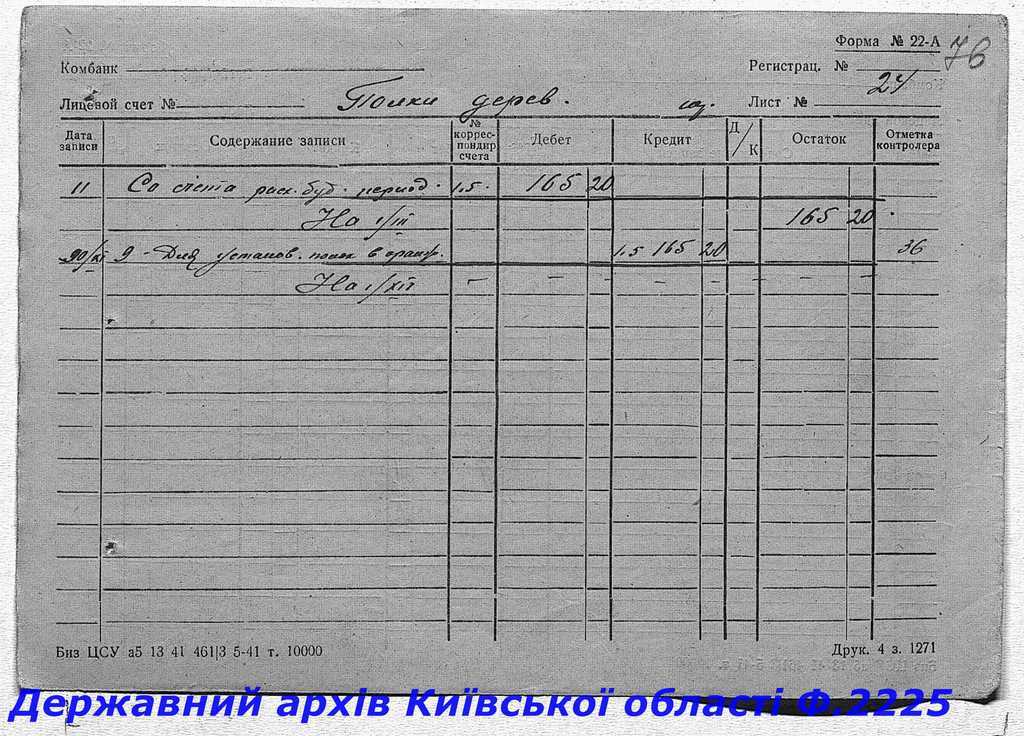 Форма № 22-А 76
Комбанк Регистрац. №
Лицевой счет № Полки дерев. Лист № 24
Дата записи Содержание записи № корреспондир счета Дебет Кредит Д/К Остаток Отметка контролера
11 Со счета рас. буд. период. 1.5. 165 20
На 1/III 165 20
9 - Для установ. полок в 1.5 165 20 36
На 1/XII — — — — — — —
Биз ЦСУ а5 13 41 461|3 5-41 т. 10000 Друк. 4 з. 1271
Державний архів Київської області Ф.2225